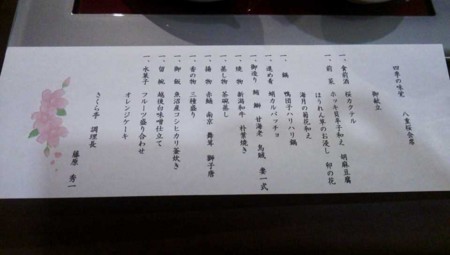 四季の味覚　八重桜会席
御献立
一、食前酒　桜カクテル
一、前菜　ホッキ貝辛子和え　胡麻豆腐
ほうれん草のお浸し　卯の花
海月の菊花和え
一、鍋　鴨団子ハリハリ鍋
一、進め肴　蛸カルパッチョ
一、御造り　鮪　鰤　甘海老　烏賊　妻一式
一、焼物　新潟和牛　朴葉焼き
一、蒸し物　茶碗蒸し
一、揚物　赤鯛　南京　舞茸　獅子唐
一、香の物　三種盛り
一、御飯　魚沼産コシヒカリ釜炊き
一、留椀　越後白味噌仕立て
一、水菓子　フルーツ盛り合わせ
オレンジケーキ
さくら亭　調理長
藤原　秀一